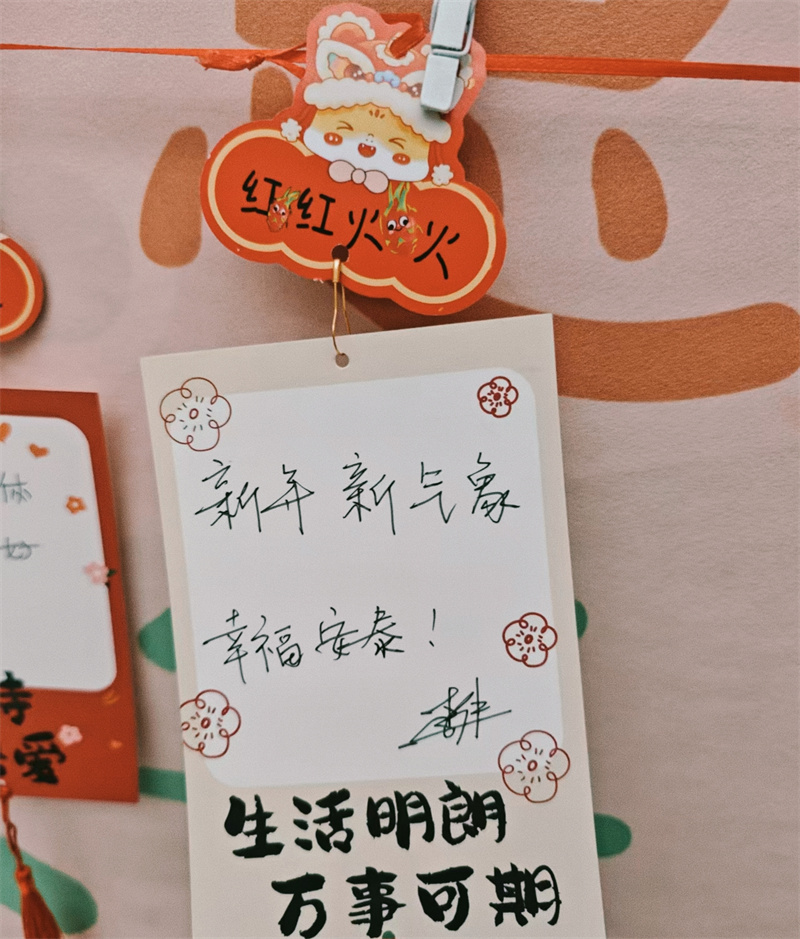 红红火火
新年新气象
幸福安泰！
生活明朗
万事可期
你
好
爱